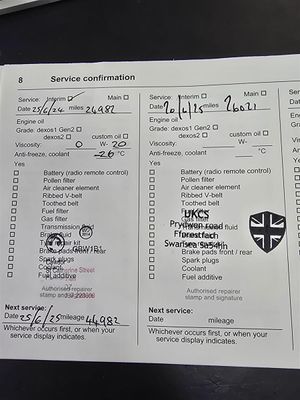 8 Service confirmation
Service: Interim ☑ Main ☐
Date 25/6/24 miles 24982
Engine oil
Grade: dexos1 Gen2 ☐
dexos2 ☐ custom oil ☐
Viscosity: 0 W- 20
Anti-freeze, coolant -26 °C
Yes
☐ Battery (radio remote control)
☐ Pollen filter
☐ Air cleaner element
☐ Ribbed V-belt
☐ Toothed belt
☐ Fuel filter
☐ Gas filter
☐ Spark plugs
☐ Coolant
☐ Fuel additive
Authorised repairer
stamp and
Next service:
Date 25/6/25 mileage 44982
Whichever occurs first, or when your
service display indicates.
Service: Interim ☐ Main ☐
Date 20/6/25 miles 26021
Engine oil
Grade: dexos1 Gen2 ☐
dexos2 ☐ custom oil ☐
Viscosity: W-
Anti-freeze, coolant °C
Yes
☐ Battery (radio remote control)
☐ Pollen filter
☐ Air cleaner element
☐ Ribbed V-belt
☐ Toothed belt
UKCS
Prydwen road
Fforestfach
Swansea
☐ Brake pads front / rear
☐ Spark plugs
☐ Coolant
☐ Fuel additive
Authorised repairer
stamp and signature
Next service:
Date mileage
Whichever occurs first, or when your
service display indicates.